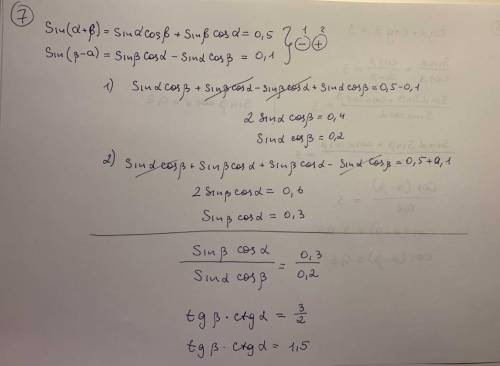 7
Sin(α+β) = sinα cosβ + sinβ cosα = 0,5
Sin(β-α) = sinβ cosα - sinα cosβ = 0,1
1 2
- +
1) Sinα cosβ + sinβ cosα - sinβ cosα + sinα cosβ = 0,5-0,1
2 sinα cosβ = 0,4
sinα cosβ = 0,2
2) sinα cosβ + sinβ cosα + sinβ cosα - sinα cosβ = 0,5+0,1
2 sinβ cosα = 0,6
Sinβ cosα = 0,3
Sinβ cosα / Sinα cosβ = 0,3 / 0,2
tgβ · ctgα = 3/2
tgβ · ctgα = 1,5